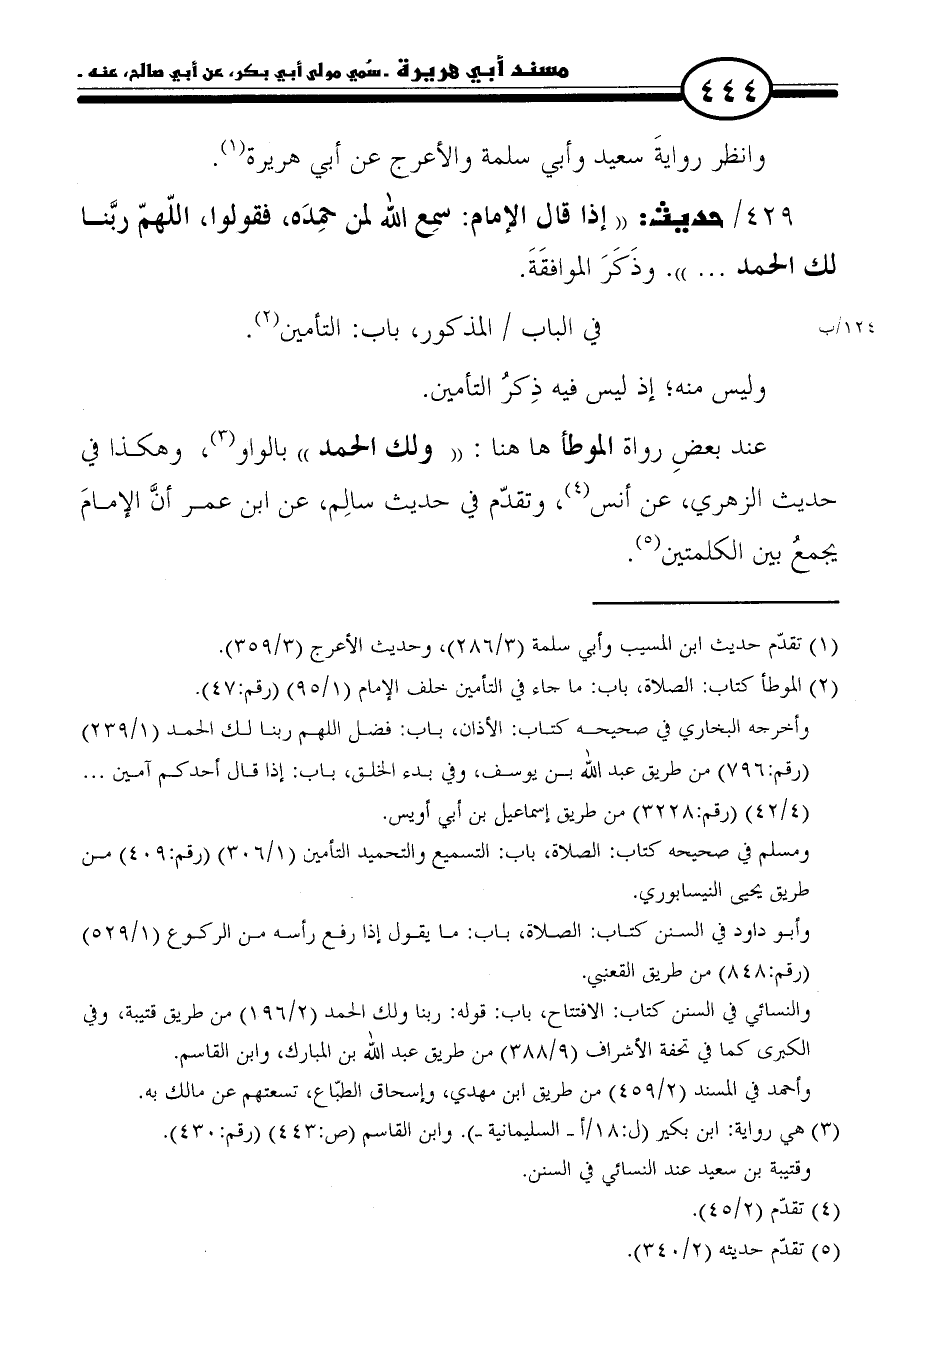 مسند أبي هريرة ـ سُمي مولى أبي بكر، عن أبي صالح، عنه ـ
٤٤٤
وانظر روايةَ سعيد وأبي سلمة والأعرج عن أبي هريرة(١).
٤٢٩/ حديث: « إذا قال الإمام: سمع الله لمن حمِدَه، فقولوا، اللّهمّ ربَّنا
لك الحمد ... ». وذَكَرَ الموافقَةَ.
في الباب / المذكور، باب: التأمين(٢).
١٢٤/ب
وليس منه؛ إذ ليس فيه ذِكرُ التأمين.
عند بعضِ رواة الموطأ ها هنا : « ولك الحمد » بالواو(٣)، وهكذا في
حديث الزهري، عن أنس(٤)، وتقدّم في حديث سالِم، عن ابن عمر أنَّ الإمامَ
يجمعُ بين الكلمتين(٥).
(١) تقدّم حديث ابن المسيب وأبي سلمة (٢٨٦/٣)، وحديث الأعرج (٣٥٩/٣).
(٢) الموطأ كتاب: الصلاة، باب: ما جاء في التأمين خلف الإمام (٩٥/١) (رقم:٤٧).
وأخرجه البخاري في صحيحه كتاب: الأذان، باب: فضل اللهم ربنا لك الحمد (٢٣٩/١)
(رقم:٧٩٦) من طريق عبد الله بن يوسف، وفي بدء الخلق، باب: إذا قال أحدكم آمين ...
(٤٢/٤) (رقم:٣٢٢٨) من طريق إسماعيل بن أبي أويس.
ومسلم في صحيحه كتاب: الصلاة، باب: التسميع والتحميد التأمين (٣٠٦/١) (رقم:٤٠٩) من
طريق يحيى النيسابوري.
وأبو داود في السنن كتاب: الصلاة، باب: ما يقول إذا رفع رأسه من الركوع (٥٢٩/١)
(رقم:٨٤٨) من طريق القعنبي.
والنسائي في السنن كتاب: الافتتاح، باب: قوله: ربنا ولك الحمد (١٩٦/٢) من طريق قتيبة، وفي
الكبرى كما في تحفة الأشراف (٣٨٨/٩) من طريق عبد الله بن المبارك، وابن القاسم.
وأحمد في المسند (٤٥٩/٢) من طريق ابن مهدي، وإسحاق الطبّاع، تسعتهم عن مالك به.
(٣) هي رواية: ابن بكير (ل:١٨/أ ـ السليمانية ـ). وابن القاسم (ص:٤٤٣) (رقم:٤٣٠).
وقتيبة بن سعيد عند النسائي في السنن.
(٤) تقدّم (٤٥/٢).
(٥) تقدّم حديثه (٣٤٠/٢).